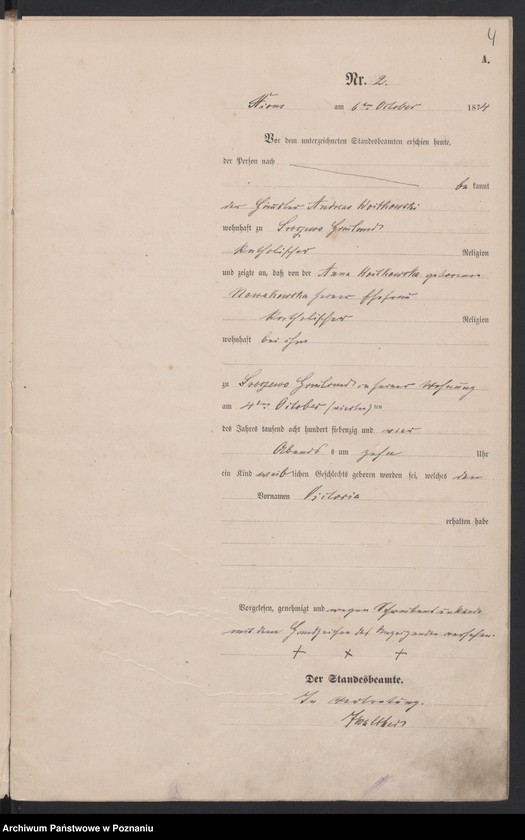 4
A.
Nr. 2.
Xions am 6ten October 1874
Vor dem unterzeichneten Standesbeamten erschien heute,
der Person nach
be kannt
der Häusler Andreas Woitkowski
wohnhaft zu Hauland
katholischer Religion
und zeigte an, daß von der Anna Woitkowska geborene
Nowakowska seiner Ehefrau
katholischer Religion
wohnhaft bei ihm
zu Hauland in seiner Wohnung
am 4ten October (vierten) ten
des Jahres tausend acht hundert siebenzig und vier
Abends s um zehn Uhr
ein Kind weib lichen Geschlechts geboren worden sei, welches den
Vornamen Victoria
erhalten habe
Vorgelesen, genehmigt und wegen Schreibensunkunde
mit dem Handzeichen des Anzeigenden versehen.
+ x +
Der Standesbeamte.
In Vertretung.
Archiwum Państwowe w Poznaniu